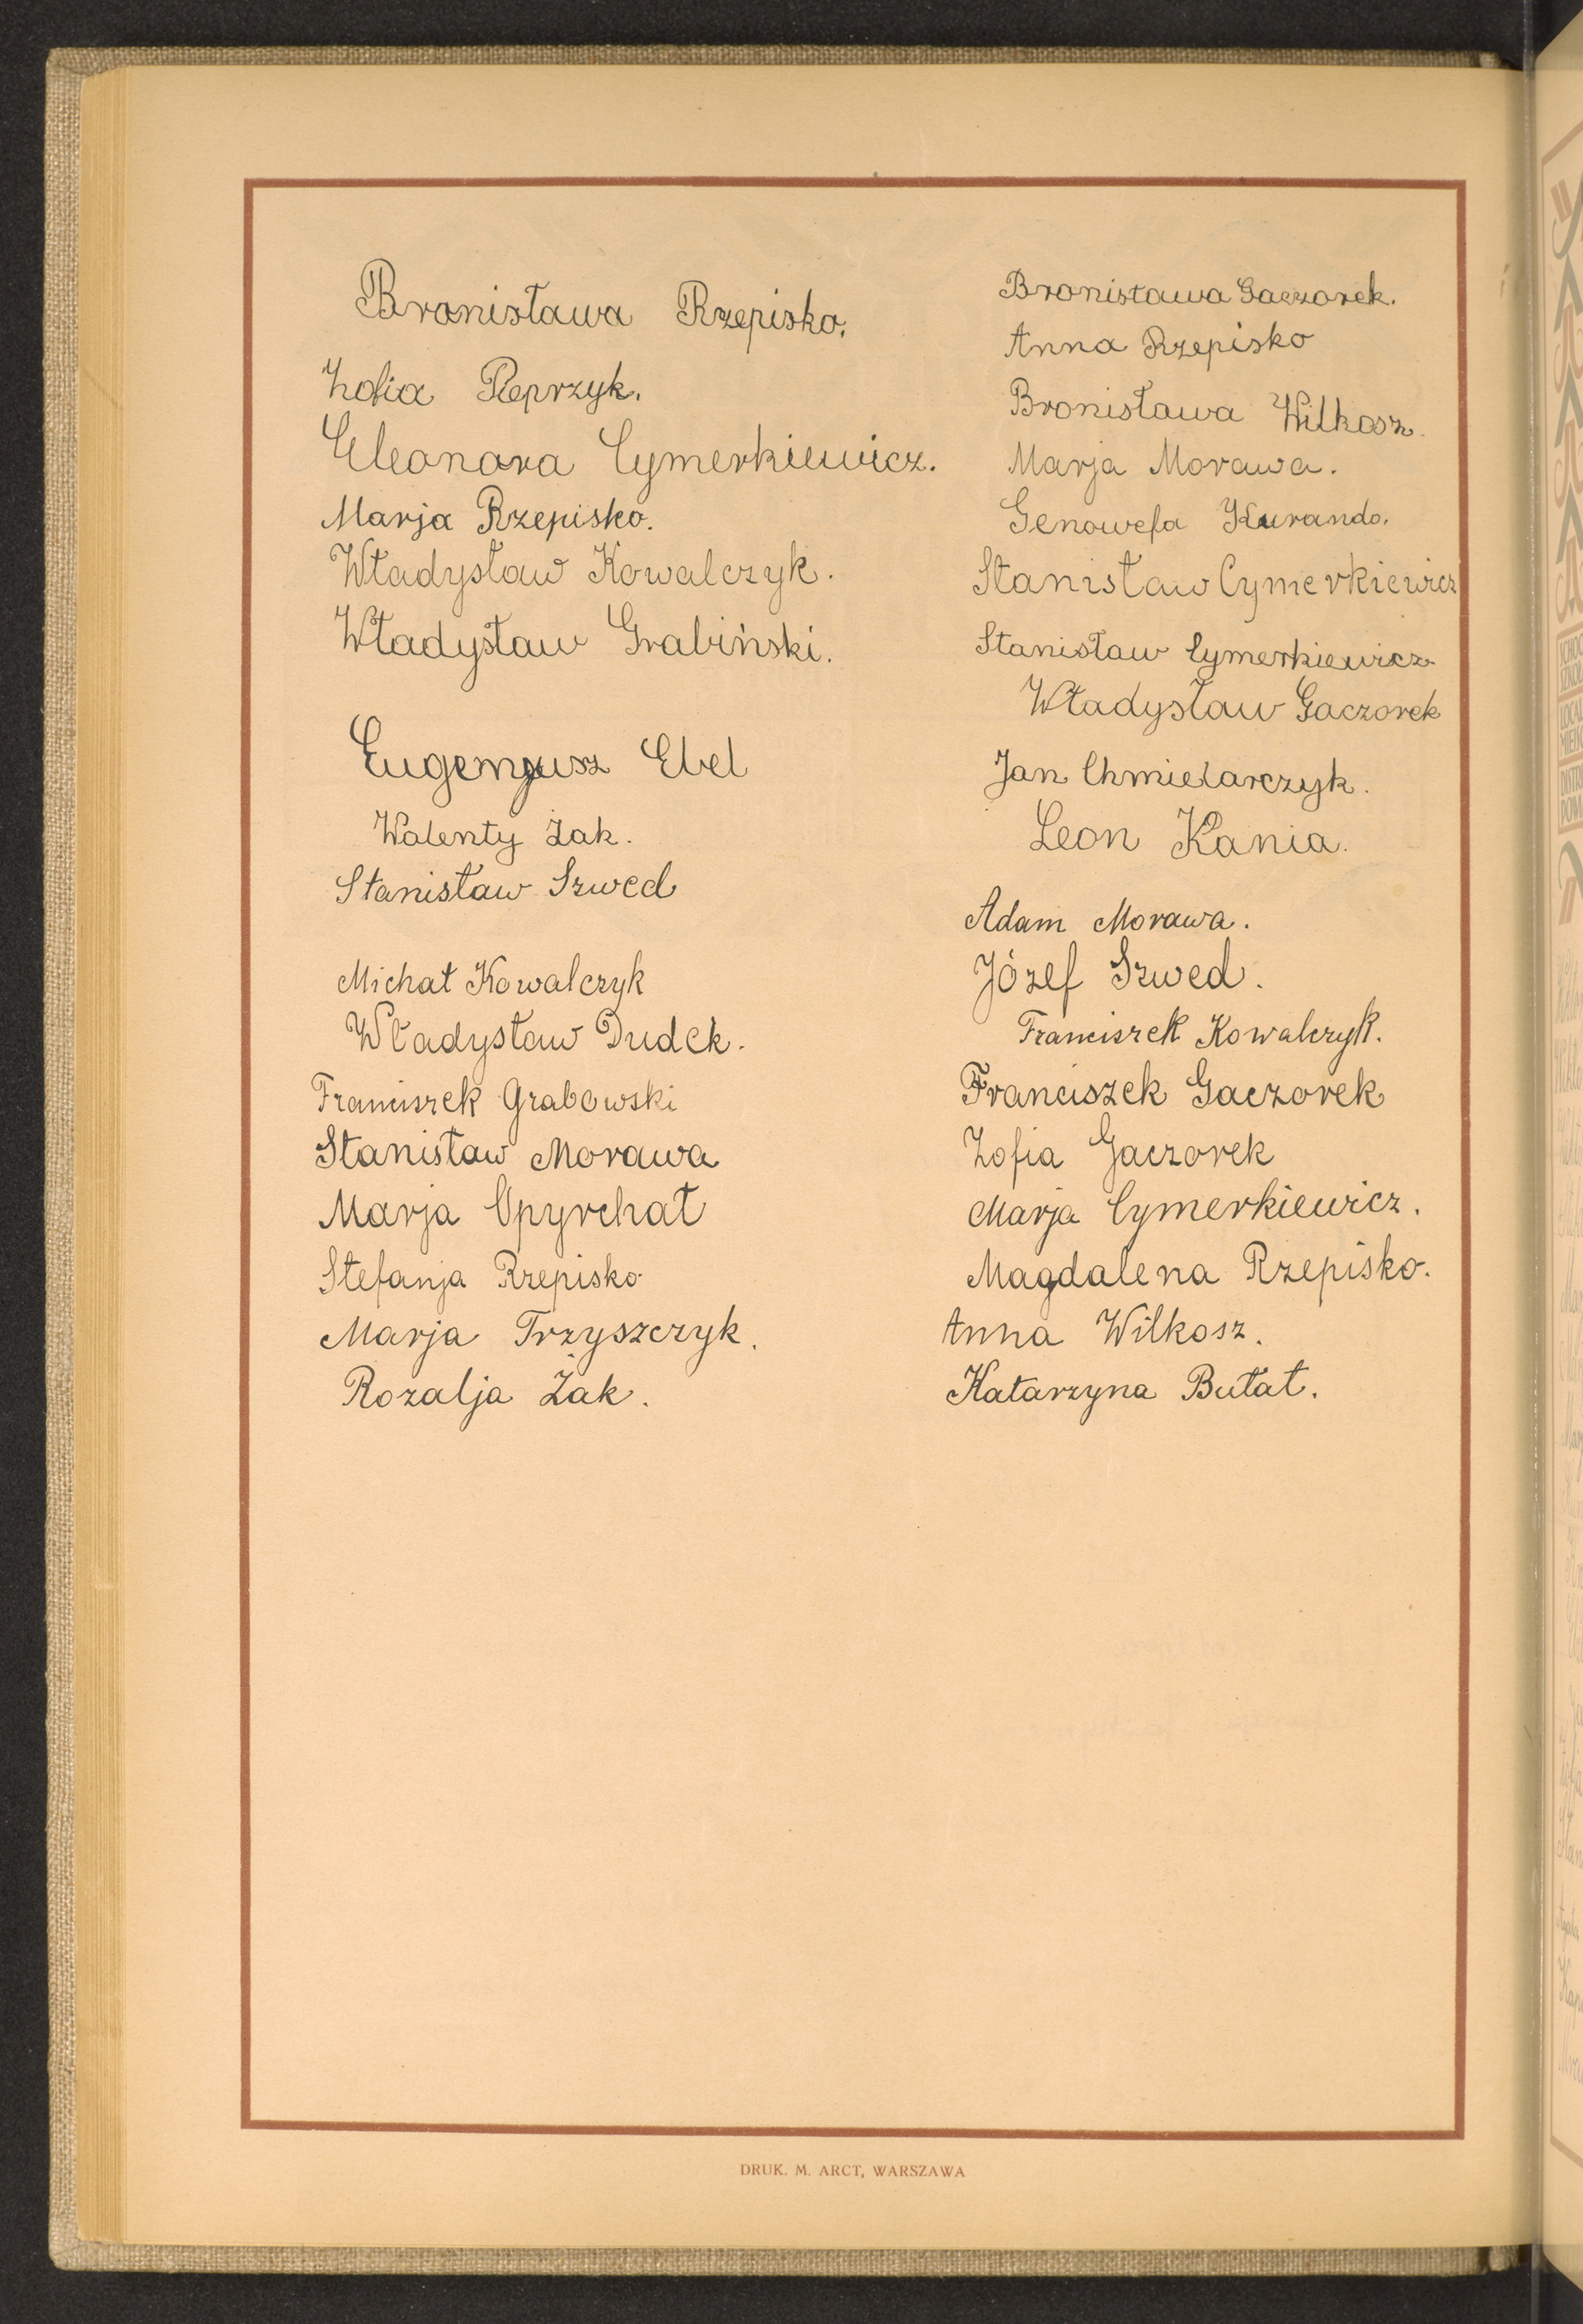 Bronisława Rzepisko.
Zofia Pieprzyk.
Eleonora Cymerkiewicz.
Marja Rzepisko.
Władysław Kowalczyk.
Władysław Grabiński.
Eugenjusz Ebel
Walenty Żak.
Stanisław Szwed
Michał Kowalczyk
Władysław Dudek.
Franciszek Grabowski
Stanisław Morawa
Marja Opyrchał
Stefanja Rzepisko
Marja Trzyszczyk.
Rozalja Żak.
Bronisława Gaczorek.
Anna Rzepisko
Bronisława Wilkosz.
Marja Morawa.
Genowefa Kurando.
Stanisław Cymerkiewicz
Stanisław Cymerkiewicz
Władysław Gaczorek
Jan Chmielarczyk.
Leon Kania.
Adam Morawa.
Józef Szwed.
Franciszek Kowalczyk.
Franciszek Gaczorek
Zofia Gaczorek
Marja Cymerkiewicz.
Magdalena Rzepisko.
Anna Wilkosz.
Katarzyna Bułat.
DRUK. M. ARCT, WARSZAWA